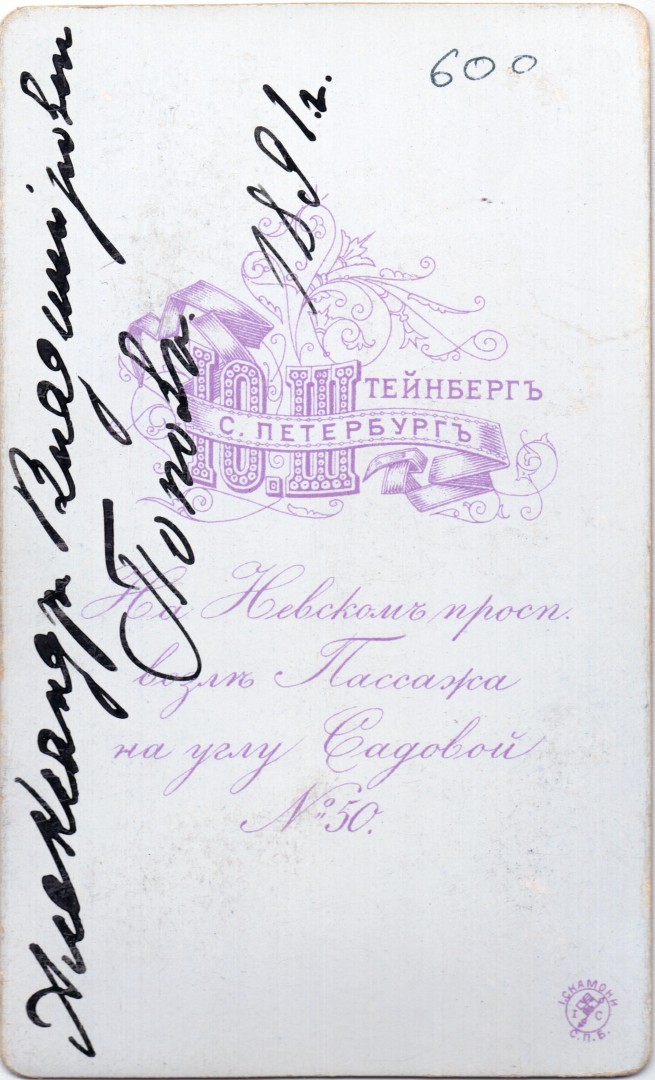 600
Александръ Владимірович
Поповъ. 1891 г.
Ю. ШТЕЙНБЕРГЪ
С. ПЕТЕРБУРГЪ
На Невскомъ просп.
возлѣ Пассажа
на углу Садовой
№ 50.
І. СКАМОНИ
І С
С.П.Б.